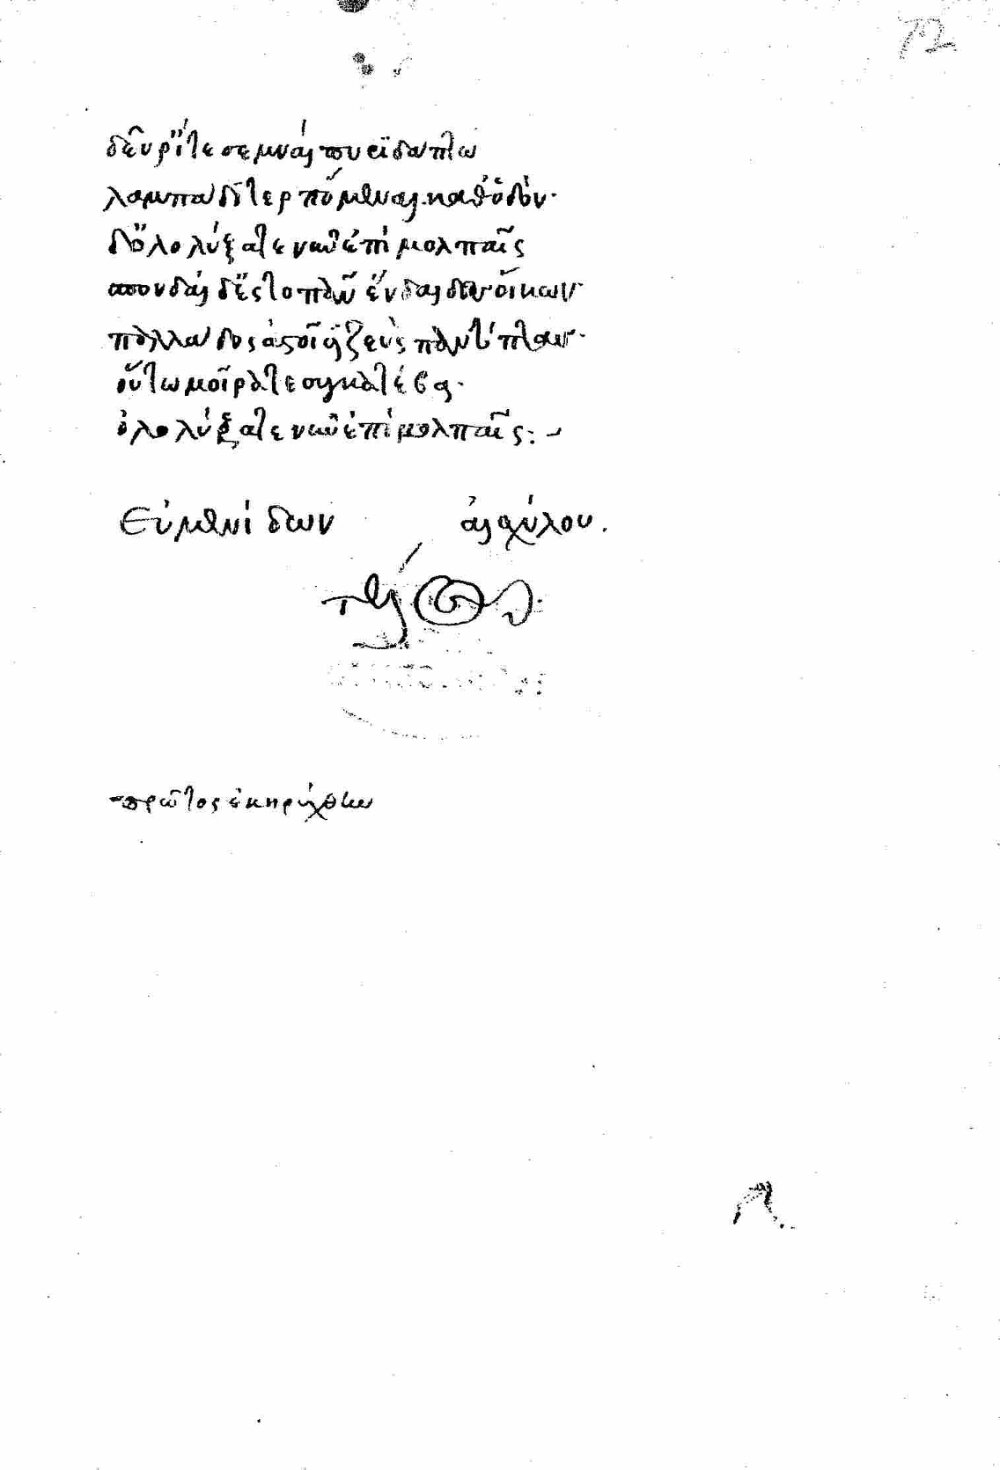 72
δεῦρ ἴτε σεμναὶ πυειδάπτω
λαμπάδι τερπόμεναι καθ ὁδὸν·
δ ὀλολύξατε νῦν ἐπὶ μολπαῖς
σπονδαὶ δ ἐς τοπᾶν ἔνδαιδες οἴκων
παλλάδος ἀστοῖς ζεὺς παντόπτας·
οὕτω μοῖρά τε συγκατέβα·
ὀλολύξατε νῦν ἐπὶ μολπαῖς:
Εὐμενίδων αἰσχύλου.
τέλος
πρῶτος ἐκηρύχθην